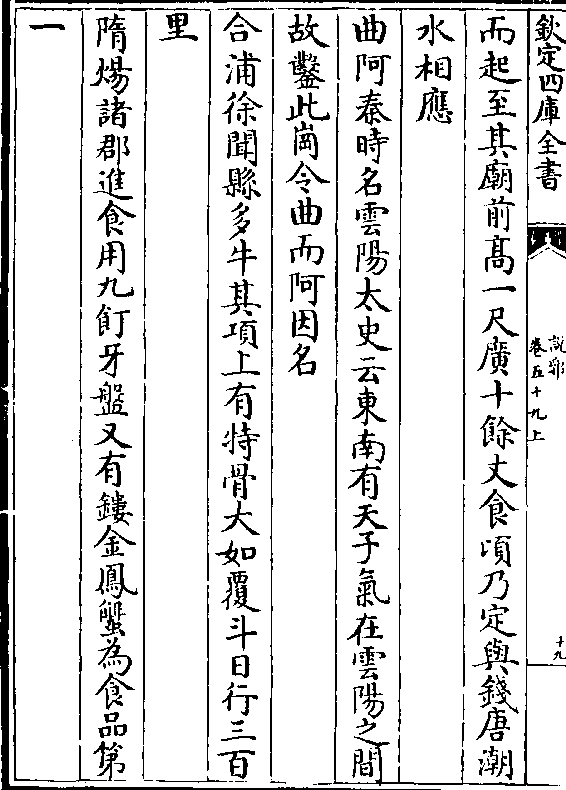 欽定四庫全書
說郛
卷五十九上
十九
而起至其廟前髙一尺廣十餘丈食頃乃定與錢唐潮
水相應
曲阿秦時名雲陽太史云東南有天子氣在雲陽之間
故鑿此崗令曲而阿因名
合浦徐聞縣多牛其項上有特骨大如覆斗日行三百
里
隋煬諸郡進食用九飣牙盤又有鏤金鳳蟹為食品第
一